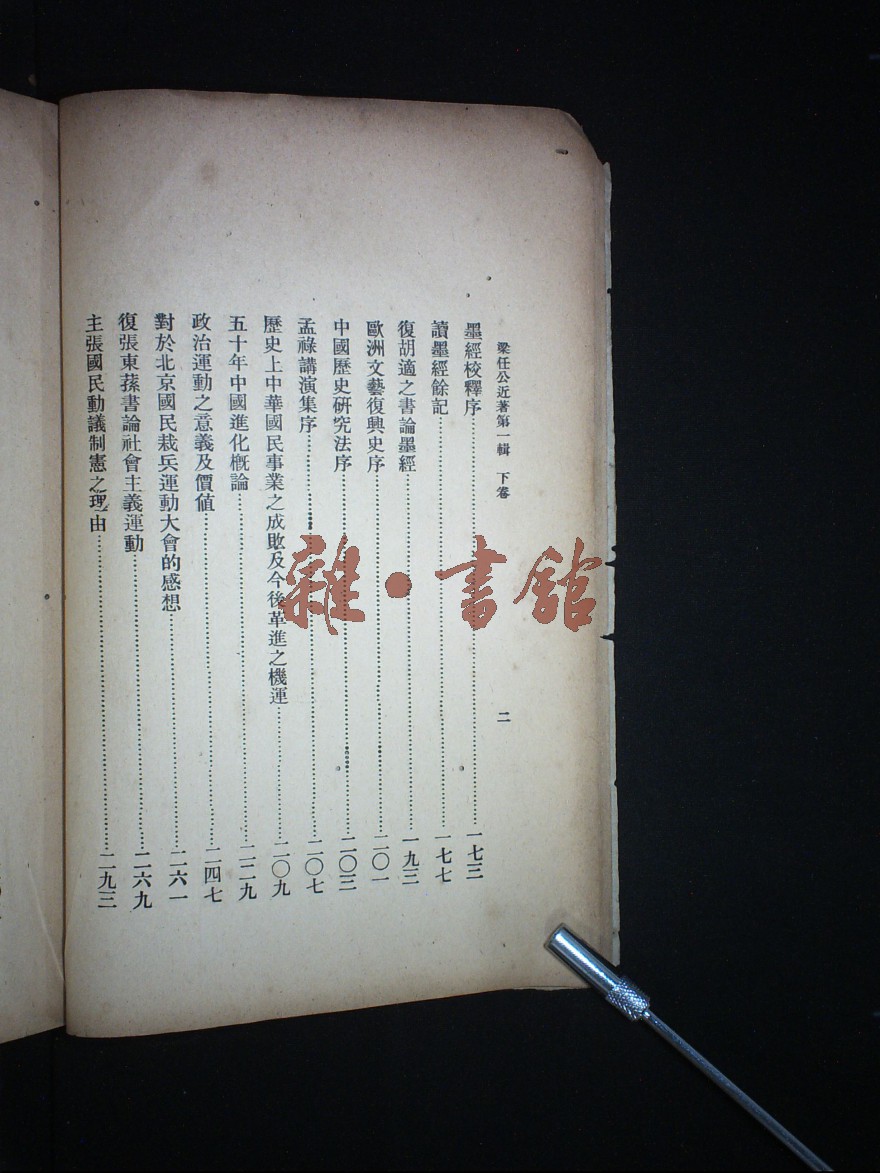 梁任公近著第一輯　下卷　二
墨經校釋序……一七三
讀墨經餘記……一七七
復胡適之書論墨經……一九三
歐洲文藝復興史序……二〇一
中國歷史研究法序……二〇三
孟祿講演集序……二〇七
歷史上中華國民事業之成敗及今後革進之機運……二〇九
五十年中國進化概論……二二九
政治運動之意義及價値……二四七
對於北京國民裁兵運動大會的感想……二六一
復張東蓀書論社會主義運動……二六九
主張國民動議制憲之理由……二九三
雜·書館